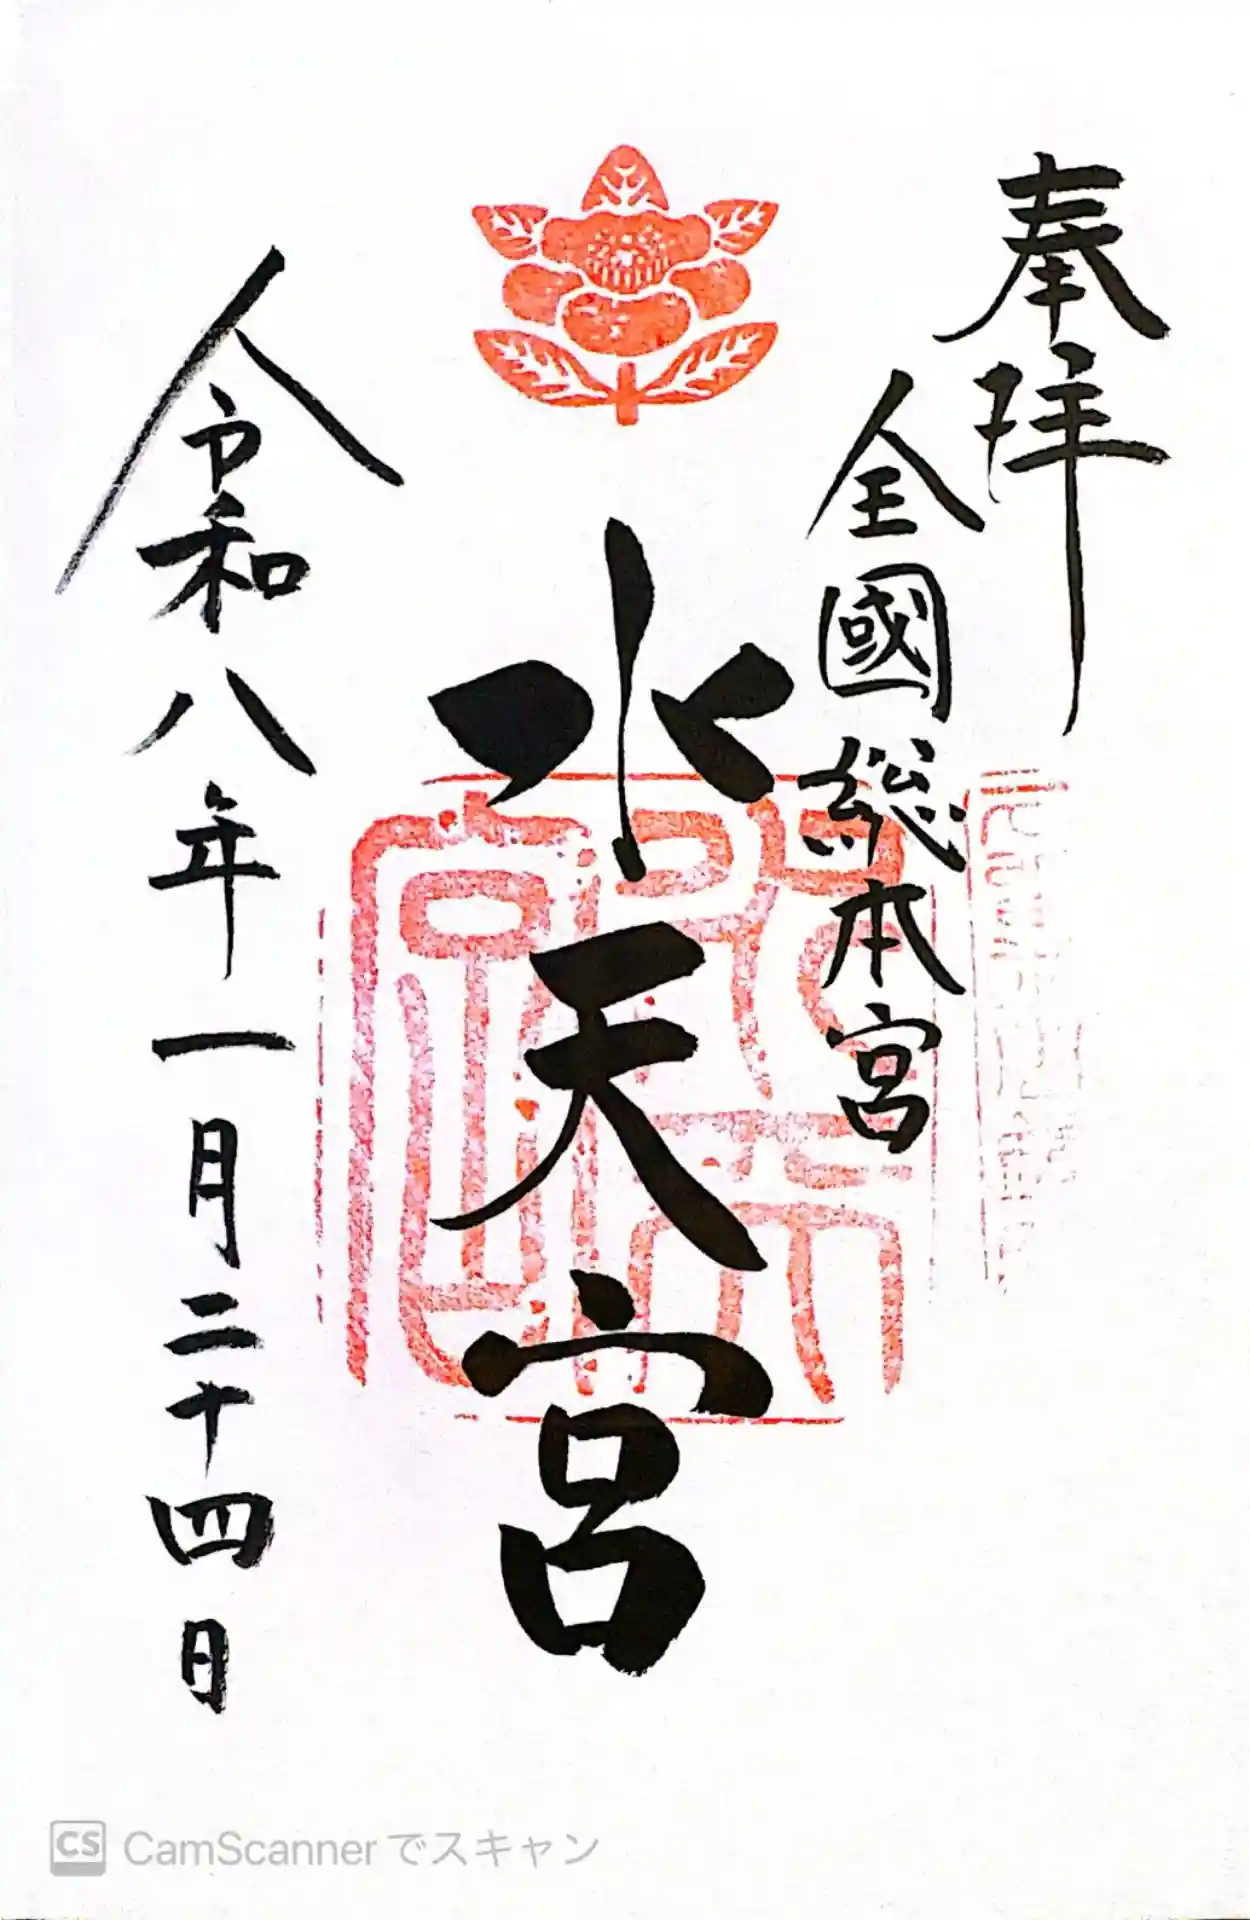 奉拝
全國総本宮
水天宮
令和八年一月二十四日
CS CamScannerでスキャン